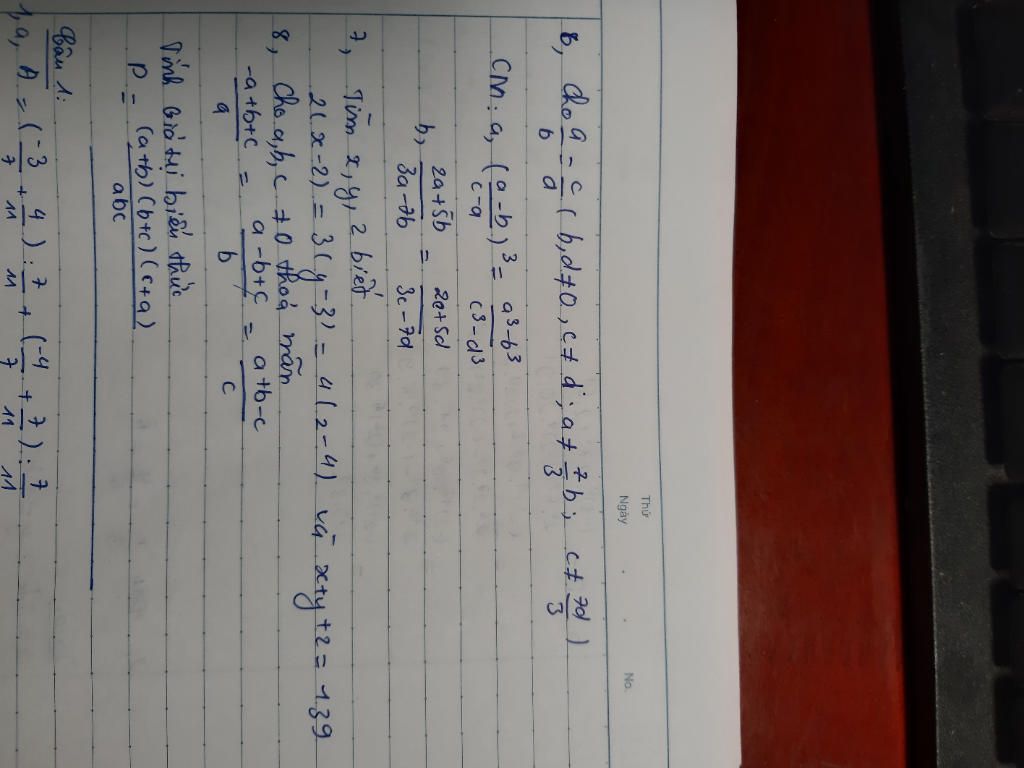 Thứ
Ngày . . No.
6, Cho a/b = c/d (b,d≠0, c≠d; a≠7/3b; c≠7d/3)
CM: a, (a-b/c-d)³ = a³-b³/c³-d³
b, 2a+5b/3a-7b = 2c+5d/3c-7d
7, Tìm x, y, z biết
2(x-2) = 3(y-3) = 4(z-4) và x+y+z = 139
8, Cho a,b,c ≠0 thoả mãn
-a+b+c/a = a-b+c/b = a+b-c/c
Tính giá trị biểu thức
P = (a+b)(b+c)(c+a)/abc
Bài 1:
1, a, A = (-3/7 + 4/11) : 7/11 + (-4/7 + 7/11) : 7/11